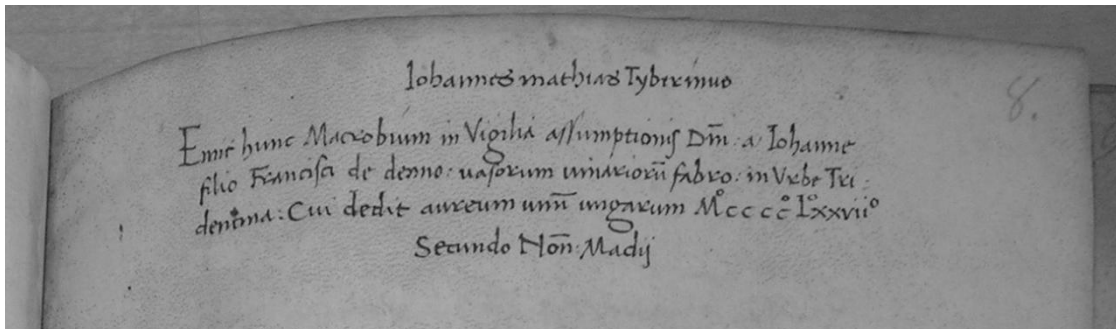 Iohannes mathias Tyberinus
Emit hunc Macrobium in Vigilia assumptionis Dm̄: a Iohanne
filio Francisci de denno: vasorum vinariorū fabro: in Vrbe Tri:
dentina: Cui dedit aureum unū ungarum Mº ccccº Lºxxviiº
Secundo Nōn: Madij
8.